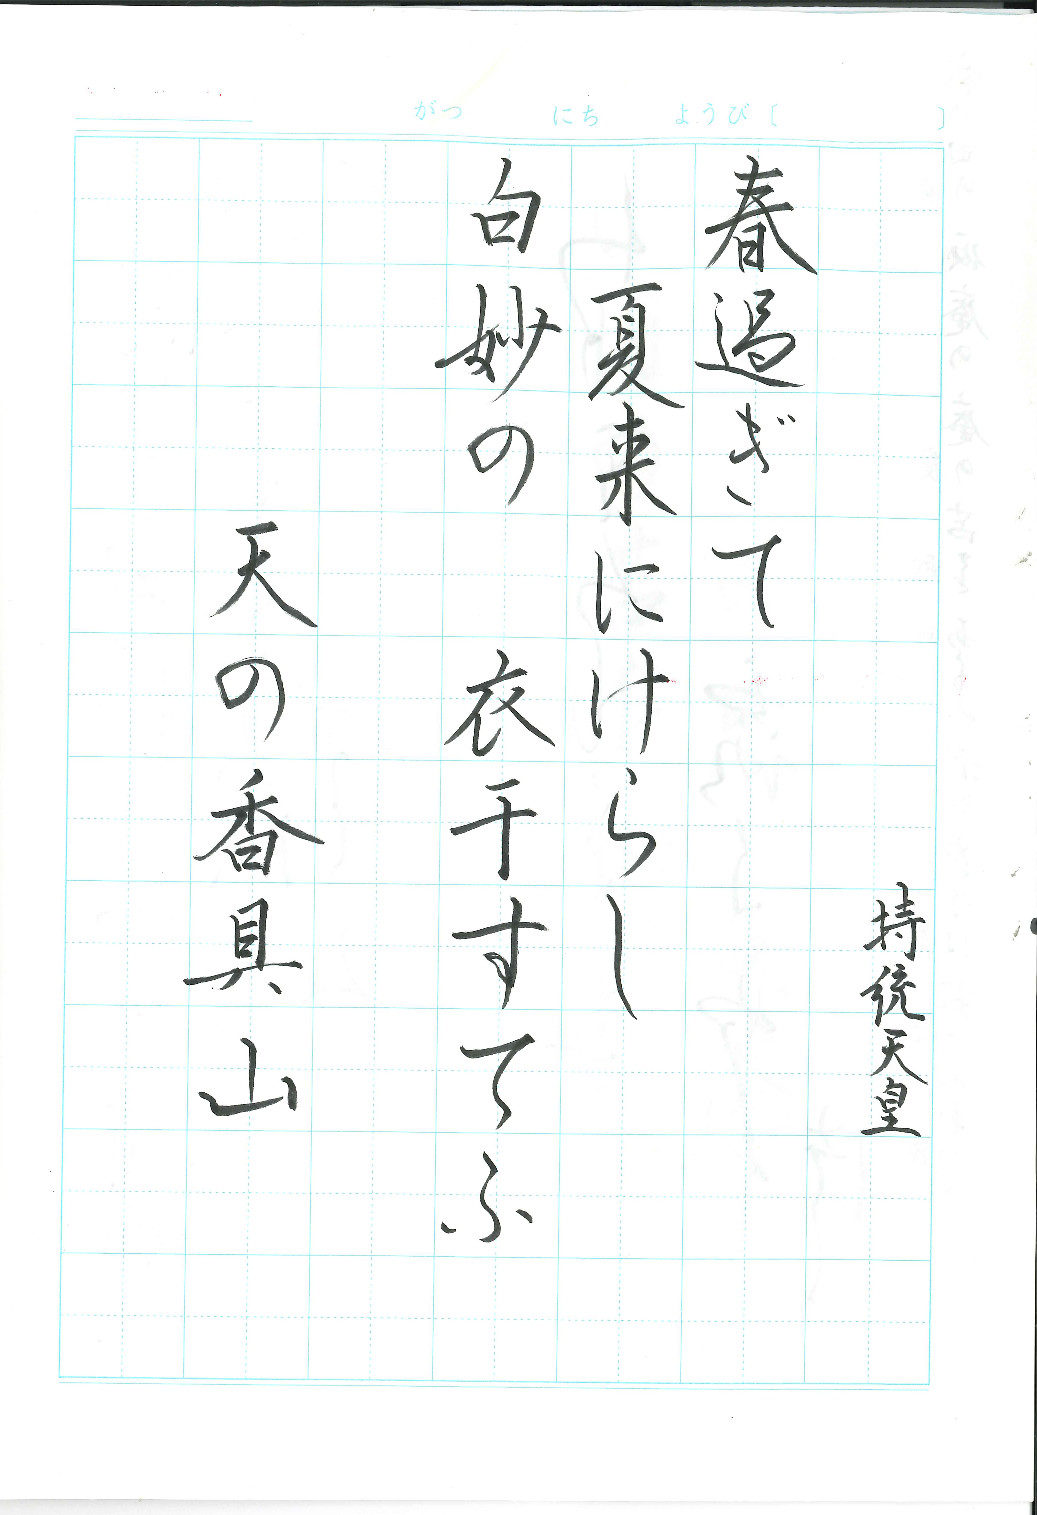 がつ にち ようび〔 〕
持統天皇
春過ぎて
夏来にけらし
白妙の 衣干すてふ
天の香具山